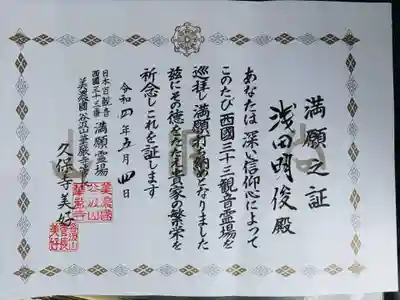 満願之証
浅田明俊殿
あなたは深い信仰心によって
このたび西國三十三観音霊場を
巡拝し満願打ち納めとなりました
茲にその徳をたたえ貴家の繁栄を
祈念しこれを証します
令和四年五月四日
日本百観音
西國三十三番 満願霊場
美濃國谷汲山華厳寺
久保寺美好